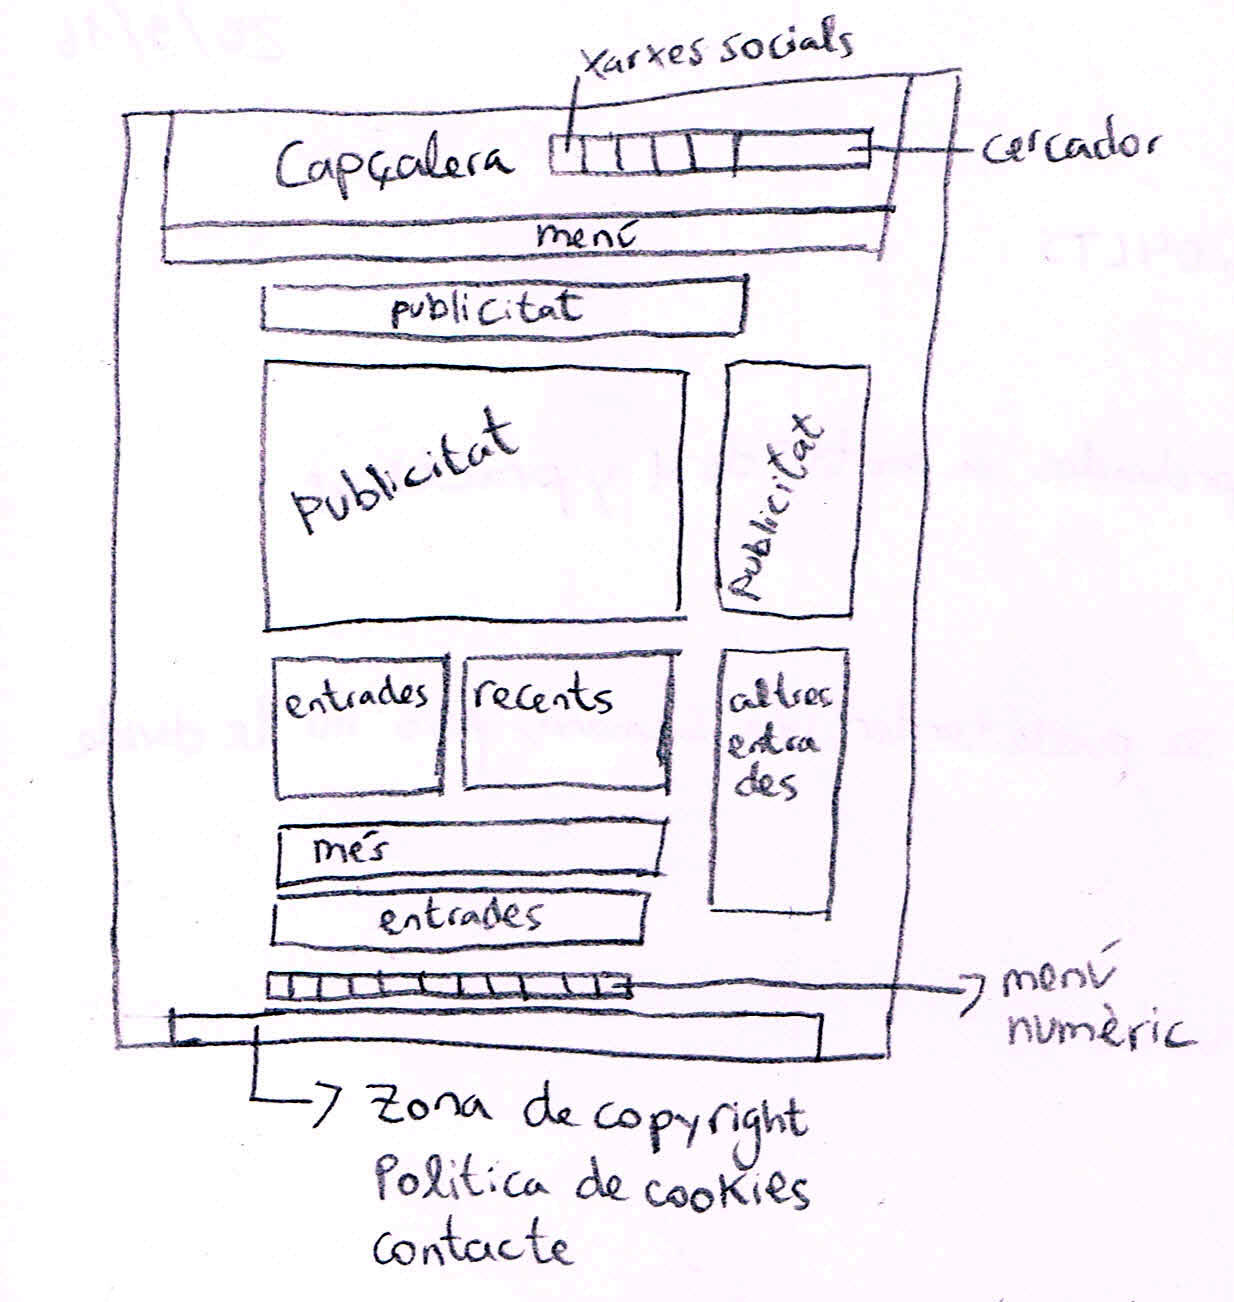 xarxes socials
Capçalera
cercador
menú
publicitat
Publicitat
Publicitat
entrades
recents
altres
entra
des
més
entrades
menú
numèric
Zona de copyright
Política de cookies
contacte